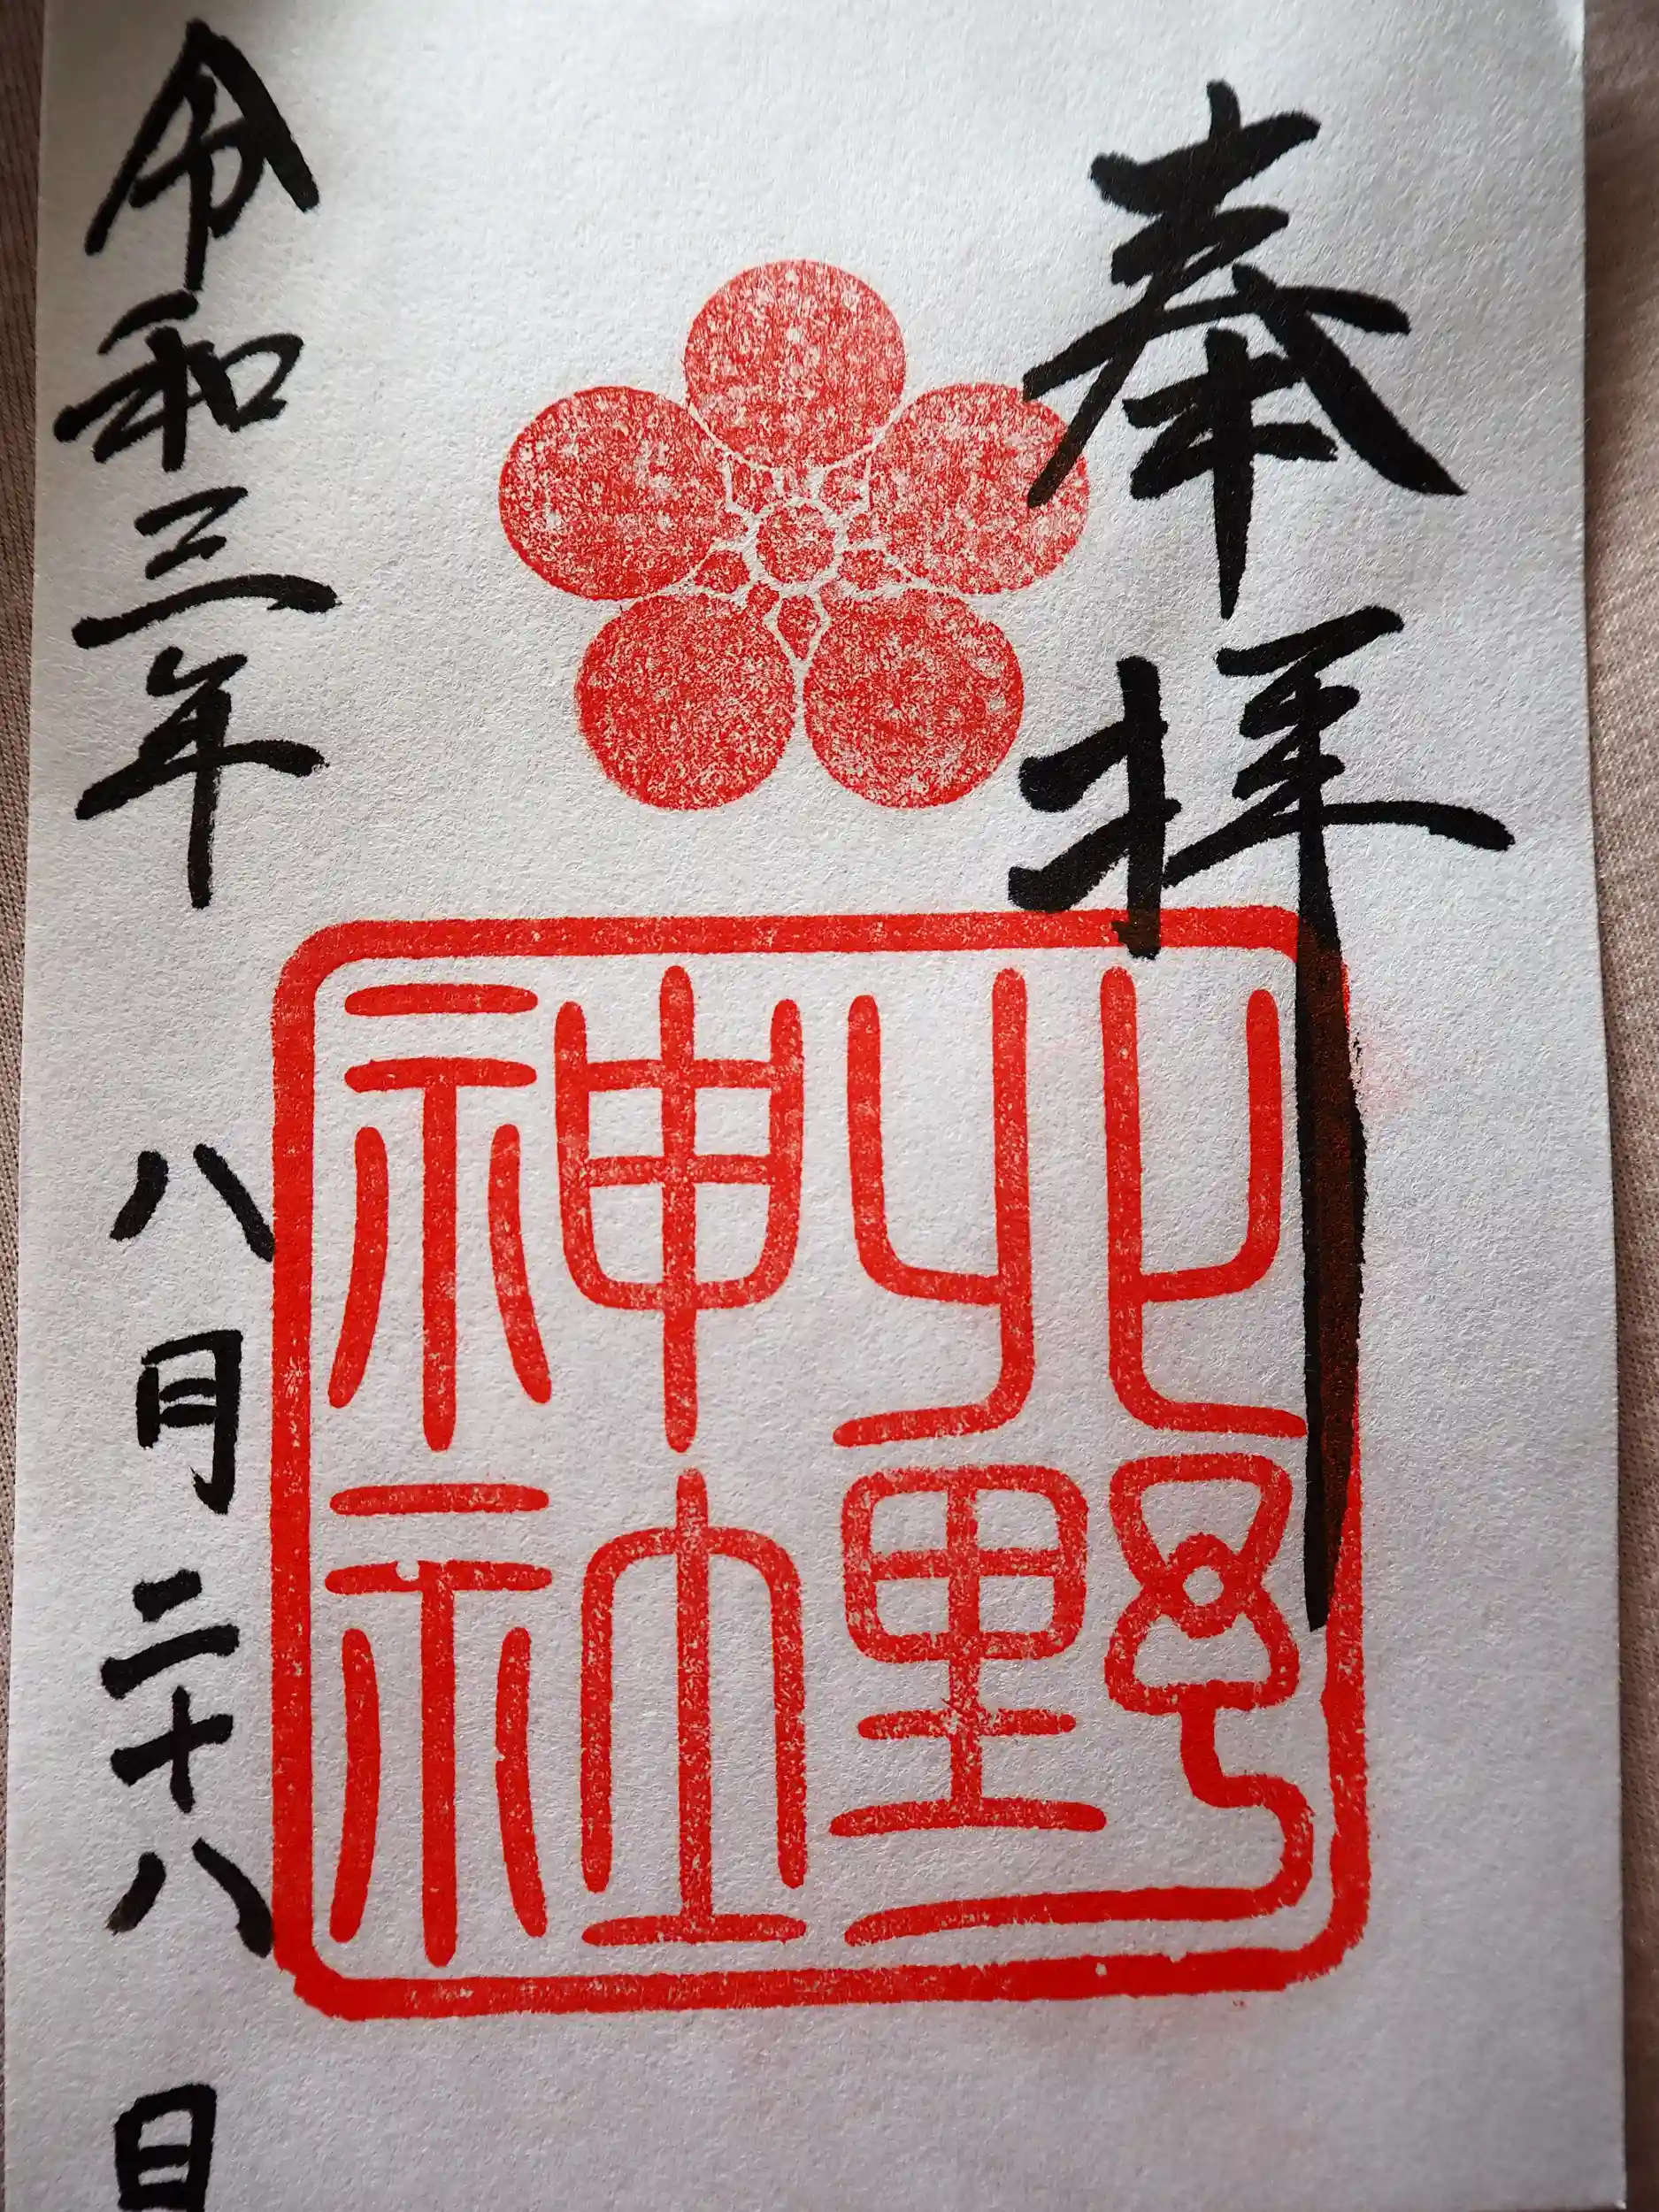 奉拝
北野
神社
令和三年八月二十八日